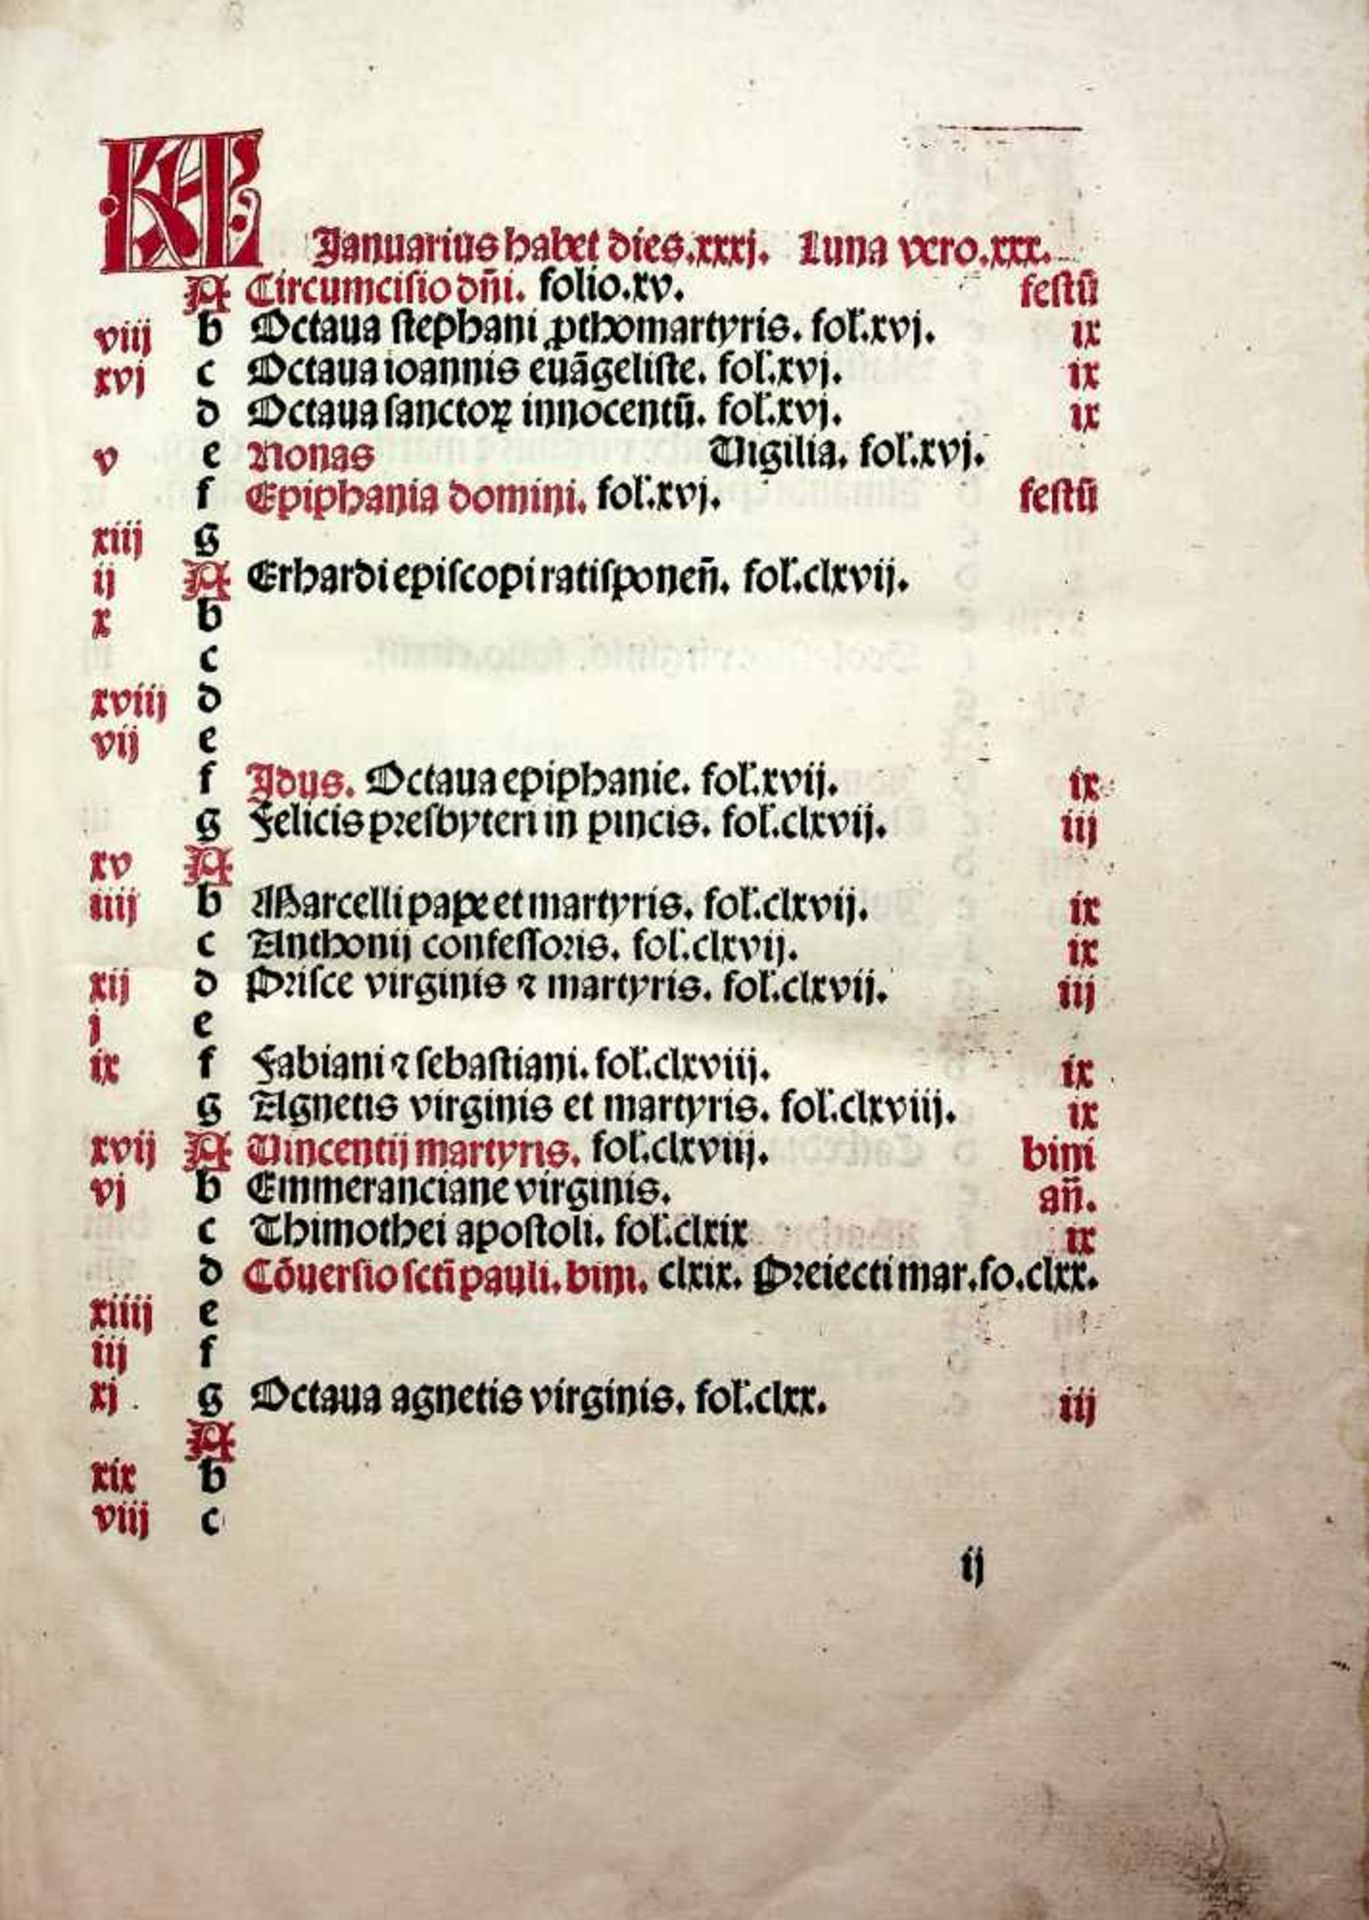 KL
Januarius habet dies.xxxj. Luna vero.xxx.
A Circumcisio dn̄i. folio.xv. festū
viij b Octaua stephani ꝓthomartyris. fol̓.xvj. ix
xvj c Octaua ioannis euāgeliste. fol̓.xvj. ix
d Octaua sanctoꝝ innocentū. fol̓.xvj. ix
v e Nonas Uigilia. fol̓.xvj.
f Epiphania domini. fol̓.xvj. festū
xiij g
ij A Erhardi episcopi ratisponen̄. fol̓.clxvij.
x b
c
xviij d
vij e
f Idus. Octaua epiphanie. fol̓.xvij. ix
g Felicis presbyteri in pincis. fol̓.clxvij. iij
xv A
iiij b Marcelli pape et martyris. fol̓.clxvij. ix
c Anthonij confessoris. fol̓.clxvij. ix
xij d Prisce virginis ⁊ martyris. fol̓.clxvij. iij
j e
ix f Fabiani ⁊ sebastiani. fol̓.clxviij. ix
g Agnetis virginis et martyris. fol̓.clxviij. ix
xvij A Uincentij martyris. fol̓.clxviij. bini
vj b Emmeranciane virginis. an̄.
c Thimothei apostoli. fol̓.clxix ix
d Cōuersio sctī pauli. bini. clxix. Preiecti mar.fo.clxx.
xiiij e
iij f
xj. g Octaua agnetis virginis. fol̓.clxx. iij
A
xix b
viij c
ij